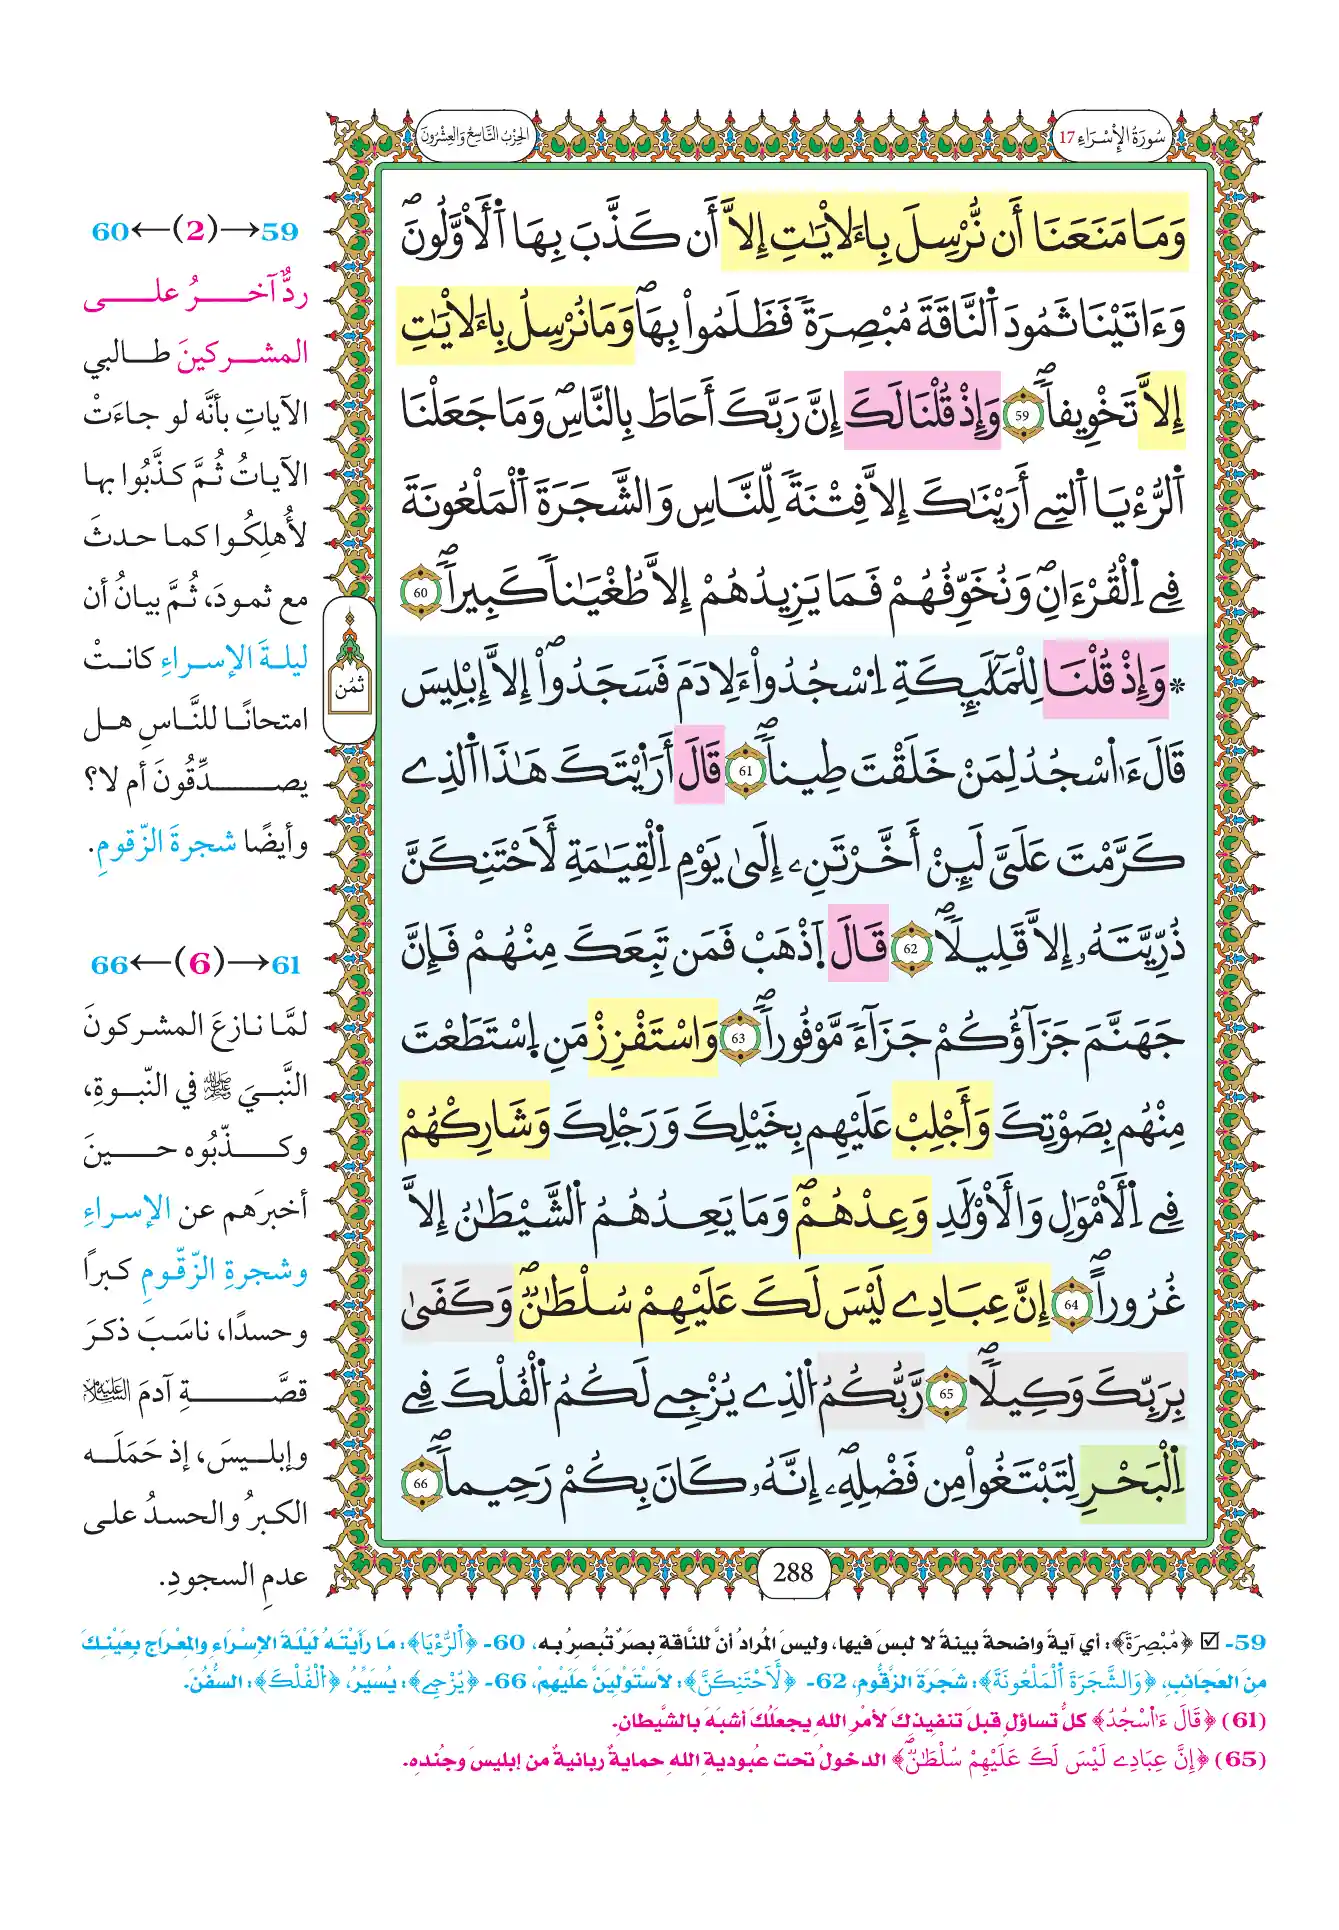 سُورَةُ الإِسْرَاءِ 17
الحِزْبُ التَّاسِعُ وَالعِشْرُونَ
وَمَا مَنَعَنَا أَن نُّرْسِلَ بِالَايَٰتِ إِلَّا أَن كَذَّبَ بِهَا اَ۬لَاوَّلُونَۖ
وَءَاتَيْنَا ثَمُودَ اَ۬لنَّاقَةَ مُبْصِرَةٗ فَظَلَمُواْ بِهَاۖ وَمَا نُرْسِلُ بِالَايَٰتِ
إِلَّا تَخْوِيفاٗۖ 59 وَإِذْ قُلْنَا لَكَ إِنَّ رَبَّكَ أَحَاطَ بِالنَّاسِۖ وَمَا جَعَلْنَا
اَ۬لرُّءْيَا اَ۬لتِےٓ أَرَيْنَٰكَ إِلَّا فِتْنَةٗ لِّلنَّاسِ وَالشَّجَرَةَ اَ۬لْمَلْعُونَةَ
فِے اِ۬لْقُرْءَانِۖ وَنُخَوِّفُهُمْ فَمَا يَزِيدُهُمْ إِلَّا طُغْيَٰناٗ كَبِيراٗۖ 60
۞ وَإِذْ قُلْنَا لِلْمَلَٰٓئِكَةِ اِ۟سْجُدُواْ ءِلَادَمَ فَسَجَدُوٓاْۖ إِلَّآ إِبْلِيسَ
قَالَ ءَآسْجُدُ لِمَنْ خَلَقْتَ طِيناٗۖ 61 قَالَ أَرَٰٓيْتَكَ هَٰذَا اَ۬لذِے
كَرَّمْتَ عَلَيَّ لَئِنْ أَخَّرْتَنِۦٓ إِلَىٰ يَوْمِ اِ۬لْقِيَٰمَةِ لَأَحْتَنِكَنَّ
ذُرِّيَّتَهُۥٓ إِلَّا قَلِيلاٗۖ 62 قَالَ اَ۪ذْهَبْ فَمَن تَبِعَكَ مِنْهُمْ فَإِنَّ
جَهَنَّمَ جَزَآؤُكُمْ جَزَآءٗ مَّوْفُوراٗۖ 63 وَاسْتَفْزِزْ مَنِ اِ۪سْتَطَعْتَ
مِنْهُم بِصَوْتِكَ وَأَجْلِبْ عَلَيْهِم بِخَيْلِكَ وَرَجْلِكَ وَشَارِكْهُمْ
فِے اِ۬لَامْوَٰلِ وَالَاوْلَٰدِ وَعِدْهُمْۖ وَمَا يَعِدُهُمُ اُ۬لشَّيْطَٰنُ إِلَّا
غُرُوراًۖ 64 إِنَّ عِبَادِے لَيْسَ لَكَ عَلَيْهِمْ سُلْطَٰنٞۖ وَكَفَىٰ
بِرَبِّكَ وَكِيلاٗۖ 65 رَّبُّكُمُ اُ۬لذِے يُزْجِے لَكُمُ اُ۬لْفُلْكَ فِے
اِ۬لْبَحْرِ لِتَبْتَغُواْ مِن فَضْلِهِۦٓۖ إِنَّهُۥ كَانَ بِكُمْ رَحِيماٗۖ 66
ثُمُن
288
59←(2)→60
ردٌّ آخرُ على
المشركينَ طالبي
الآياتِ بأنَّه لو جاءَتْ
الآياتُ ثُمَّ كذَّبُوا بها
لأُهلِكُوا كما حدثَ
مع ثمودَ، ثُمَّ بيانُ أن
ليلةَ الإسراءِ كانتْ
امتحانًا للنَّاسِ هل
يصدِّقُونَ أم لا؟
وأيضًا شجرةَ الزّقومِ.
61←(6)→66
لمَّا نازعَ المشركونَ
النَّبيَ ﷺ في النّبوةِ،
وكذّبُوه حينَ
أخبرَهم عن الإسراءِ
وشجرةِ الزّقّومِ كبرًا
وحسدًا، ناسَبَ ذكرَ
قصَّةِ آدمَ عليه السلام
وإبليسَ، إذ حَمَلَه
الكبرُ والحسدُ على
عدمِ السجودِ.
59- ☑ ﴿مُبْصِرَةٗ﴾: أي آيةً واضحةً بينةً لا لبسَ فيها، وليسَ المُرادُ أنَّ للنَّاقةِ بصَرٌ تُبصِرُ به، 60- ﴿اَ۬لرُّءْيَا﴾: مَا رَأَيْتَهُ لَيْلَةَ الإِسْرَاءِ والمِعْرَاجِ بِعَيْنِكَ
مِنَ العَجَائِبِ، ﴿وَالشَّجَرَةَ اَ۬لْمَلْعُونَةَ﴾: شجَرَةَ الزَّقُّومِ، 62- ﴿لَأَحْتَنِكَنَّ﴾: لأَسْتَوْلِيَنَّ عَلَيْهِمْ، 66- ﴿يُزْجِے﴾: يُسَيِّرُ، ﴿اُ۬لْفُلْكَ﴾: السُّفُنَ.
(61) ﴿قَالَ ءَآسْجُدُ﴾ كلُّ تساؤلٍ قبلَ تنفيذِكَ لأمْرِ اللهِ يجعلُكَ أشبَهَ بالشَّيطانِ.
(65) ﴿إِنَّ عِبَادِے لَيْسَ لَكَ عَلَيْهِمْ سُلْطَٰنٞۖ﴾ الدخولُ تحت عُبوديةِ اللهِ حمايةٌ ربانيةٌ من إبليسَ وجُندِهِ.